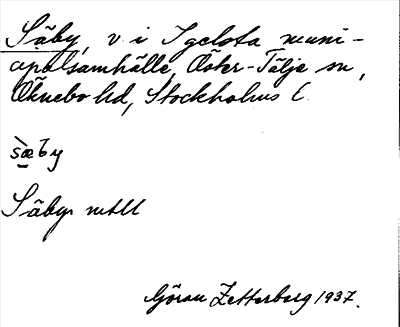 Säby, v. i Igelsta muni-
cipalsamhälle, Öster-Tälje sn,
Öknebo hd, Stockholms l.
sæby
Säby mtll
Göran Zetterberg 1937.